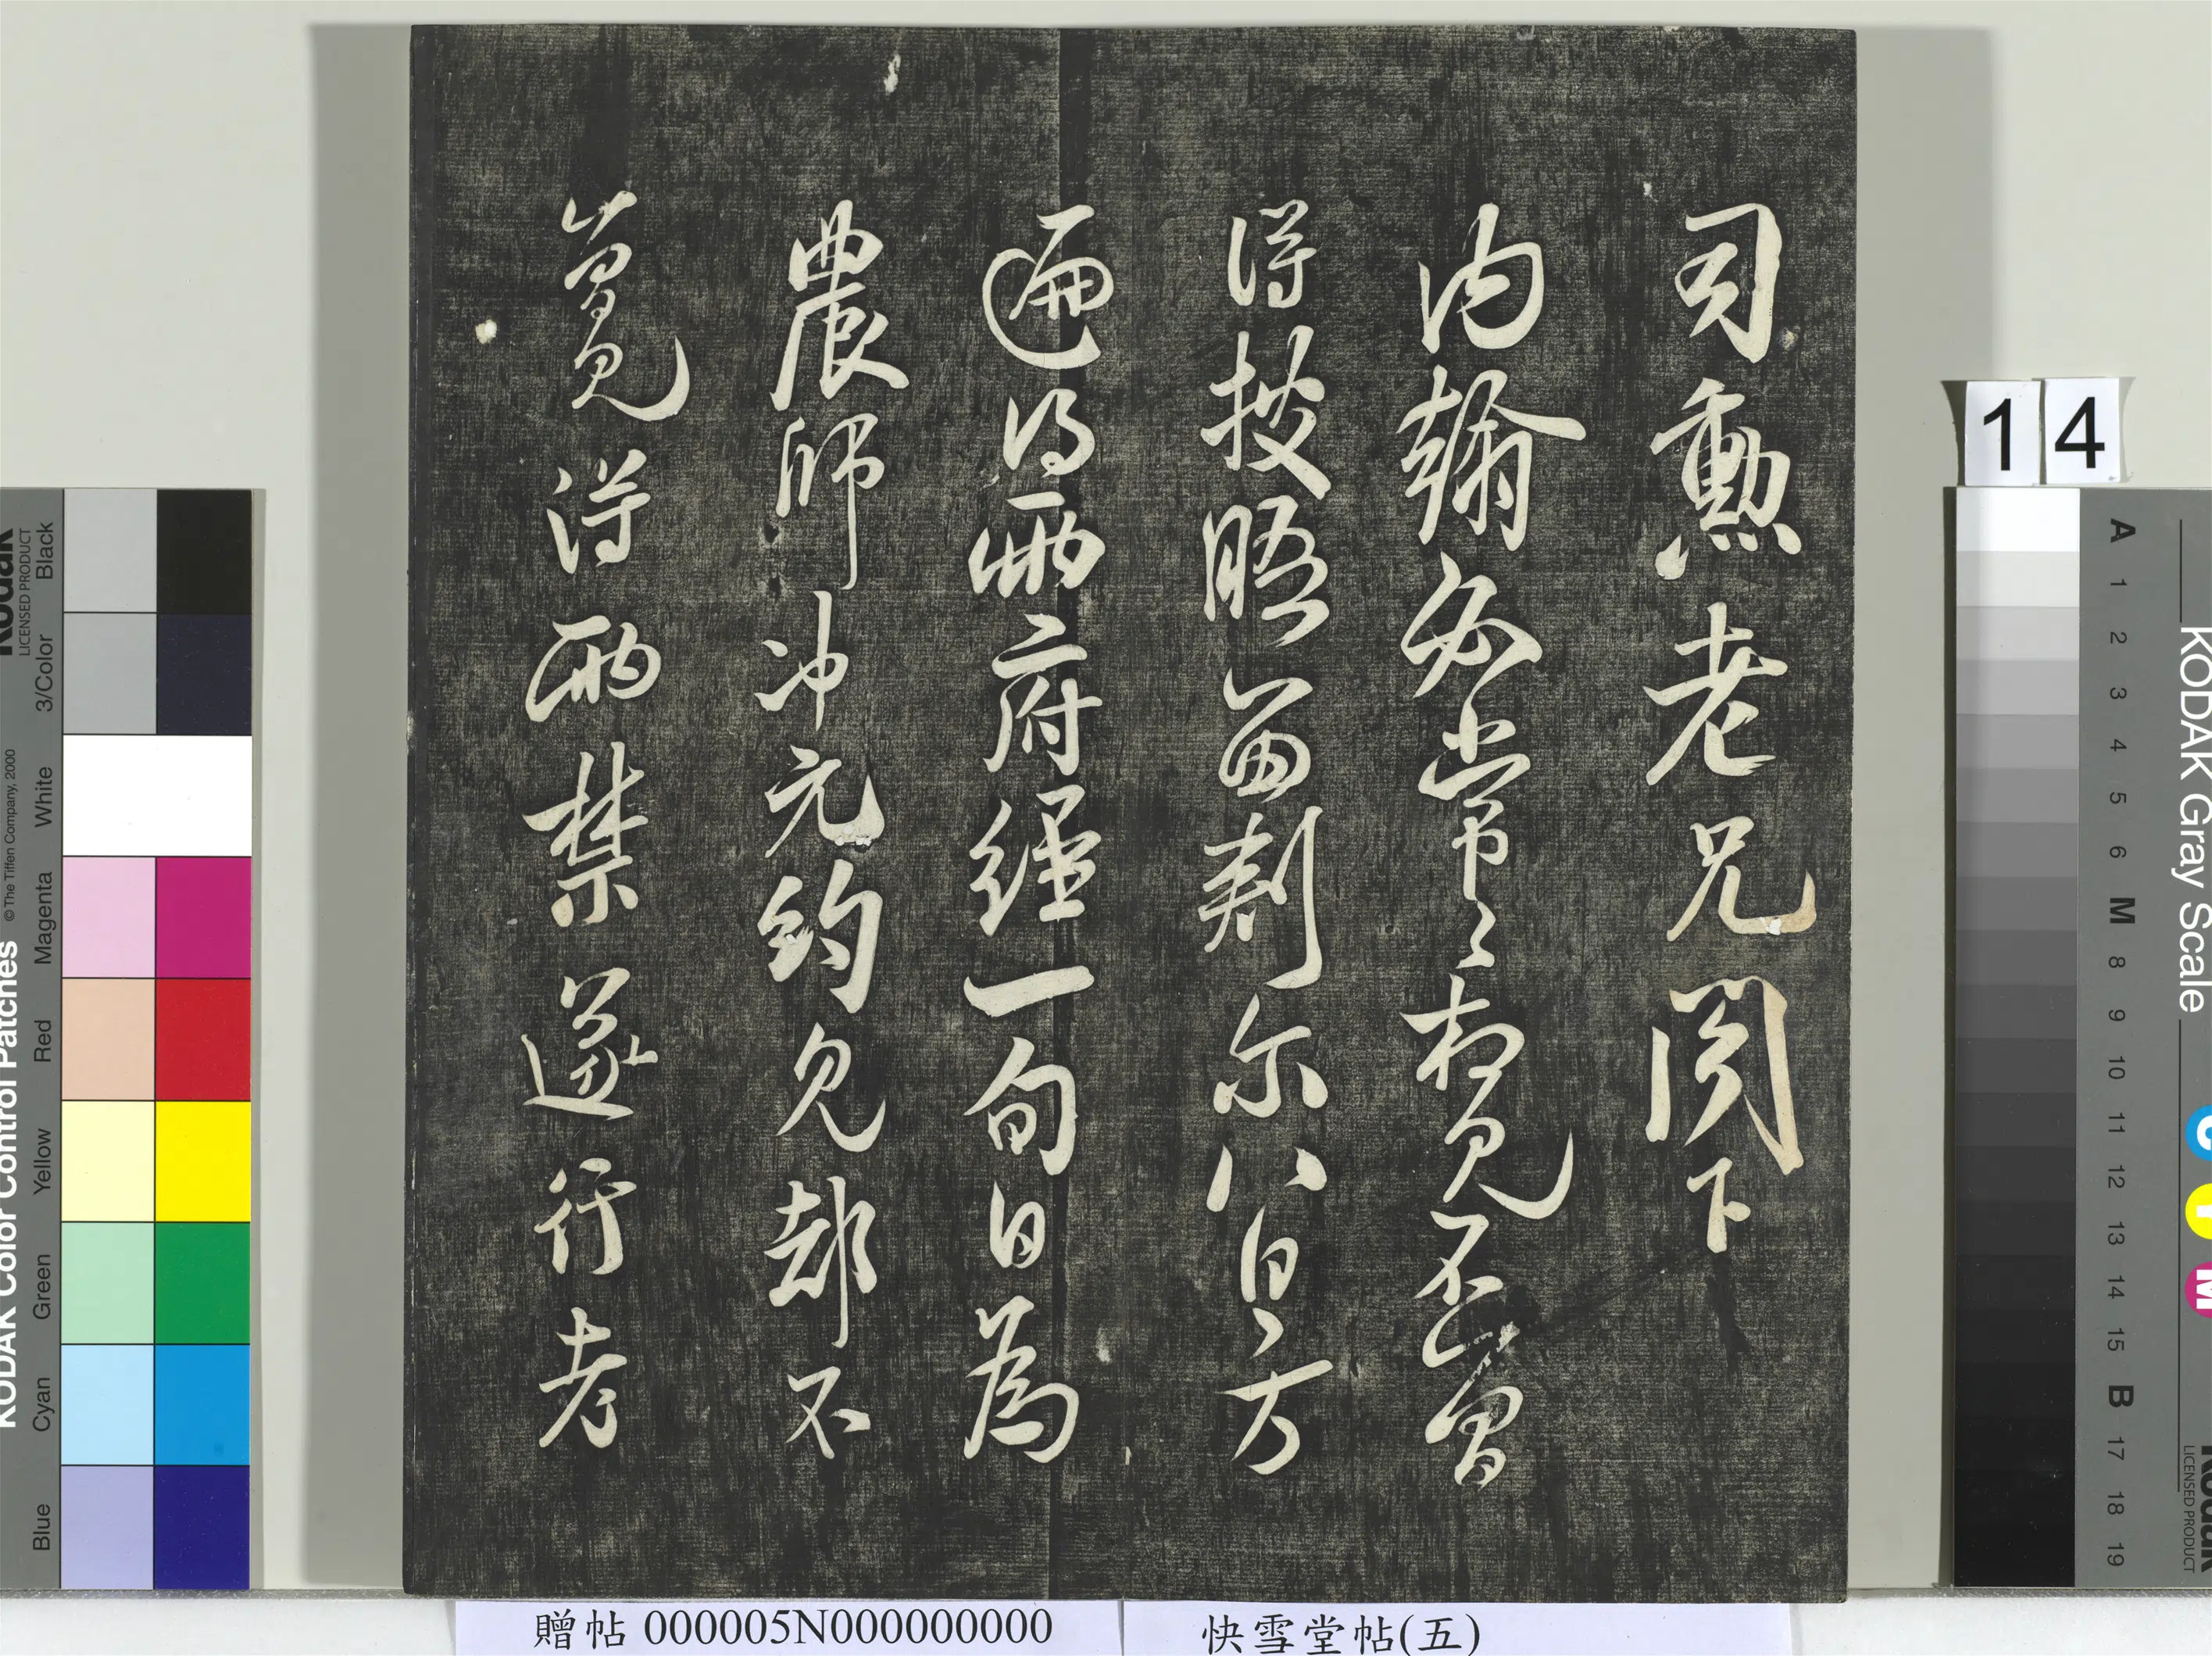 司勳老兄閤下
内翰必常〻相見不曾
得披晤留刺尔八日方
遍得兩府經一旬日為
農師冲元約見却不
曾見得兩禁遂行考
14
贈帖 000005N000000000
快雪堂帖(五)
KODAK Color Control Patches
Kodak
LICENSED PRODUCT
© The Tiffen Company, 2000
Black
3/Color
White
Magenta
Red
Yellow
Green
Cyan
Blue
KODAK Gray Scale
C
Y
M
Kodak
LICENSED PRODUCT
A 1 2 3 4 5 6 M 8 9 10 11 12 13 14 15 B 17 18 19